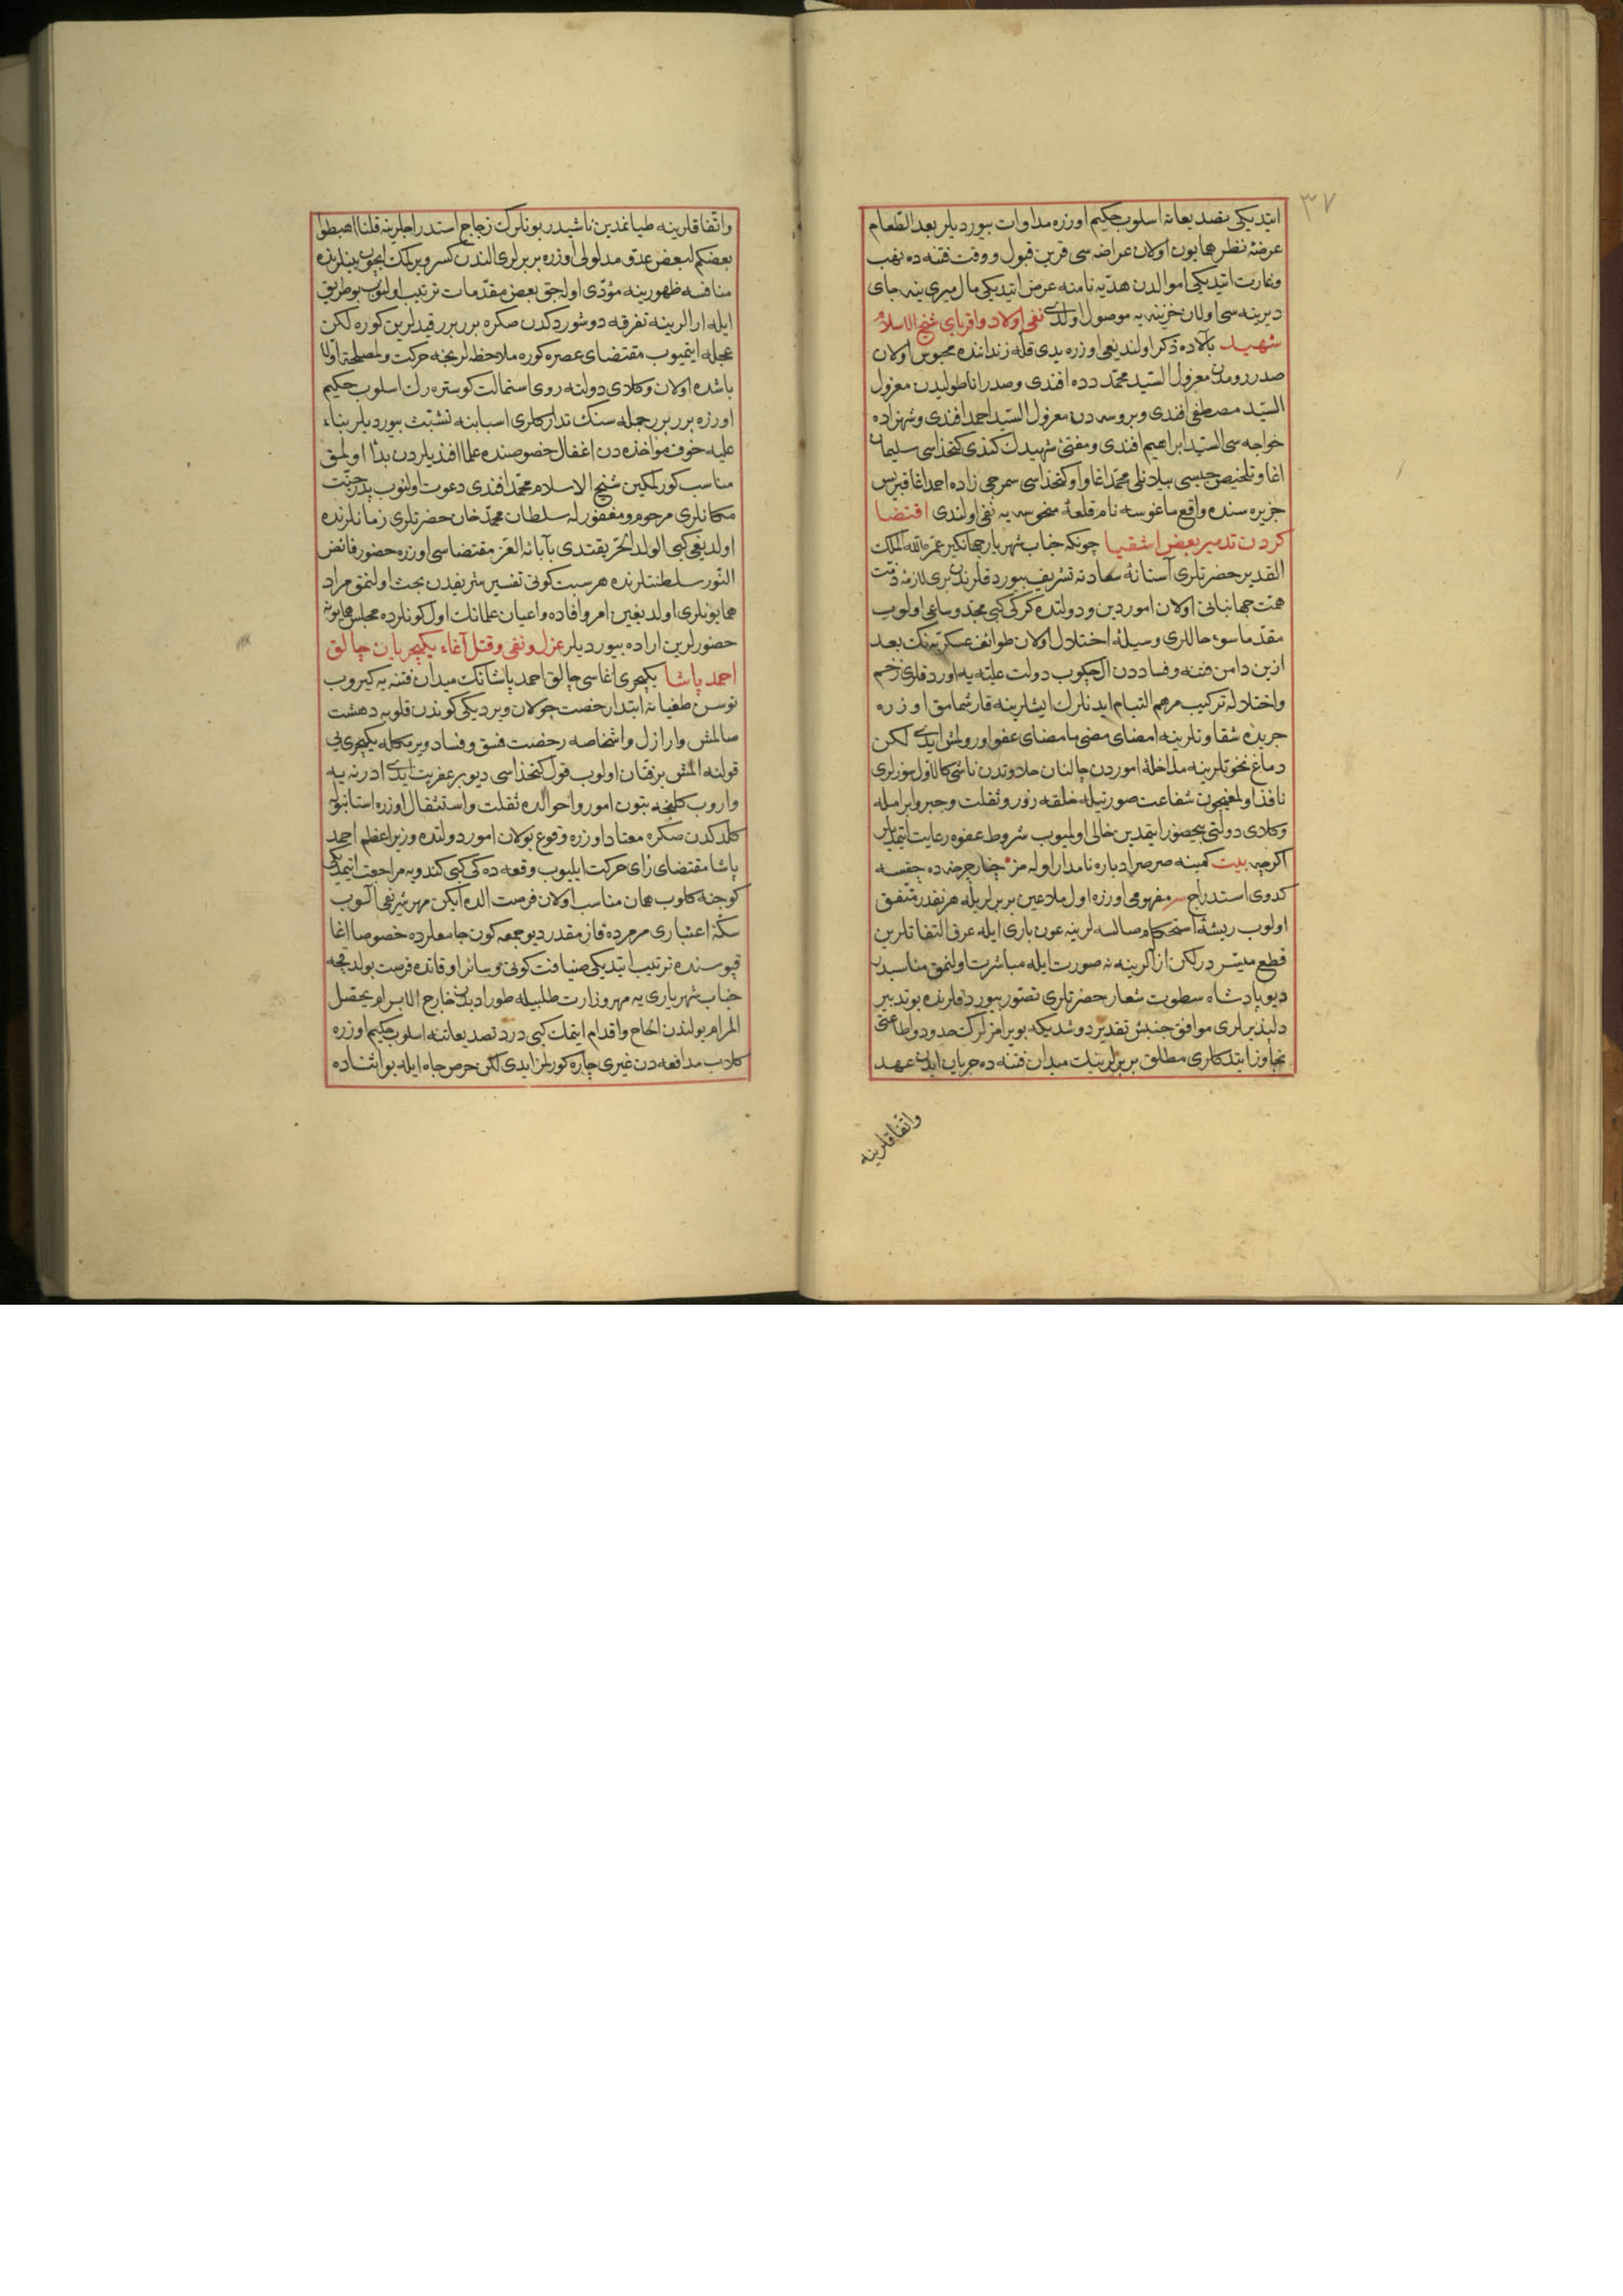 ٣٧
ایتدیکی تصدیعاته اسلوب حکیم اوزره مداوات بیوردیلر بعد الطعام
عرضۀ نظر همایون اولان عراضه سی قرین قبول و وقت فتنه ده نهب
وغارت ایتدیکی اموالدن هدیه نامنه عرض ایتدیکی مال میری ینه جای
دیرینه سی اولان خزینه یه موصول اولدی نفی اولاد واقربای شیخ الاسلام
شهید بالاده ذکر اولندیغی اوزره یدی قله زنداننده محبوس اولان
صدر رومدن معزول السید محمد دده افندی وصدر اناطولیدن معزول
السید مصطفی افندی وبروسه دن معزول السید احمد افندی وشهزاده
خواجه سی السید ابراهیم افندی ومفتئ شهیدك کندی کتخداسی سلیمان
اغا وتلخیص جیسی محمد اغا واو کتخداسی سمرجی زاده احمد اغا قبریس
جزیره سنده واقع ماغوسه نام قلعۀ منحوسه یه نفی اولندی اقتضا
کردن تدمیر بعض اشقیا چونکه جناب شهریار جهانکیر عمره الله الملک
القدیر حضرتلری آستانۀ سعادته تشریف بیوردقلرندن بری لازمۀ ذمت
همت جهانبانی اولان امور دین ودولتده کرکی کبی مجد وساعی اولوب
مقدما سوء حاللری وسیلۀ اختلال اولان طوائف عسکریه نك بعد
ازین دامن فتنه وفساددن ال چکوب دولت علیه یه اوردقلری زخم
واختلاله ترکیب مرهم التیام ایدنلرك ایشلرینه قارشمامق اوزره
جریدۀ شقاوتلرینه امضای مضی ما مضای عفو اورولمش ایدی لکن
دماغ نخوتلرینه مداخلۀ اموردن چالنان حلاوتدن ناشی کالاول سوزلری
نافذ اولمغیچون شفاعت صورتیله خلقه زور وثقلت وجبر وابرامله
وکلای دولتی بیحضور ایتمدین خالی اولمیوب شروط عفوه رعایت ایتمدیلر
اکرچه بیت کمینه صرصر ادباره نامدار اوله مز چنار چرخنه ده چقسه
کدوی استدراج سر مفهومی اوزره اول ملاعین بربرلریله هرنقدر متفق
اولوب ریشۀ استحکام صالسه لرینه عون باری ایله عرق التفاتلرین
قطع میسر درلکن ازالرینه نه صورت ایله مباشرت اولنمق مناسبدر
دیو پادشاه سطوت شعار حضرتلری تصور بیوردقلرنده بو تدبیر
دلپذیرلری موافق جنبش تقدیر دوشدیکه بویرامزلرك حدود واطاعتی
تجاوز ایتدکلری مطلق بربرلرینك میدان فتنه ده جریان ایدن عهد
واتفاقلرینه
واتفاقلرینه طیانمدین ناشیدر بونلرك زجاج استدراجلرینه قلنا اهبطوا
بعضکم لبعض عدو مدلولی اوزره بربرلری الندن کسر ویرلمك ایچون بینلرنده
منافسه ظهورینه مؤدی اولجق بعض مقدمات ترتیب اولنوب بو طریق
ایله ارالرینه تفرقه دوشوردکدن صکره بربرر قیدلرین کوره لکن
عجله ایتمیوب مقتضای عصره کوره ملاحظه لر یخنه حرکت ولمصلحة اولا
باشده اولان وکلای دولته روی استمالت کوستره رك اسلوب حکیم
اوزره بربرر جمله سنك تدارکلری اسبابنه تشبث بیوردیلر بناء
علیه خوف مواخذه دن اغفال خصوصنده علما افندیلردن بدأ اولمق
مناسب کورلمکین شیخ الاسلام محمد افندی دعوت اولنوب پدر جنت
مکانلری مرحوم ومغفور له سلطان محمد خان حضرتلری زمانلرنده
اولدیغی کبی الولد الحر یقتدی بآبائه الغر مقتضاسی اوزره حضور فائض
النور سلطنتلرنده هر سبت کونی تفسیر شریفدن بحث اولنمق مراد
همایونلری اولدیغین امر وافاده واعیان علمانك اول کونلرده مجلس همایونه
حضورلرین اراده بیوردیلر عزل ونفی وقتل آغاء یکیچریان چالق
احمد پاشا یکیچری اغاسی چالق احمد پاشانك میدان فتنه یه کیروب
توسن طغیانه ابتدا رخصت جولان ویردیکی کوندن قلوبه دهشت
صالمش وارازل واشخاصه رخصت فسق وفساد ویرمکله یکیچری یی
قولنه المش بر فتان اولوب قول کتخداسی دیو بر عفریت ایدی ادرنه یه
واروب کلنجه بتون امور واحوالده ثقلت واستثقال اوزره استانبوله
کلدکدن صکره معتاد اوزره وقوع بولان امور دولتده وزیر اعظم احمد
پاشا مقتضای رای حرکت ایلیوب وقعه ده کی کبی کندویه مراجعت ایتمدیکی
کوجنه کلوب همان مناسب اولان فرصت الده ایکن مهر شریفی آلوب
سکۀ اعتباری مرمرده قازمقدر دیو جمعه کون جامعلرده خصوصا اغا
قپوسنده ترتیب ایتدیکی ضیافت کونی وسائر اوقاتده فرصت بولدقجه
جناب شهریاری یه مهر وزارت طلبیله طوراد بدن خارج الابرام یحصل
المرام یولندن الحاح واقدام ایتمك کبی درد تصدیعاتنه اسلوب حکیم اوزره
کلاب مدافعه دن غیری چاره کورلمز ایدی لکن حرص جاه ایله بو اثناده